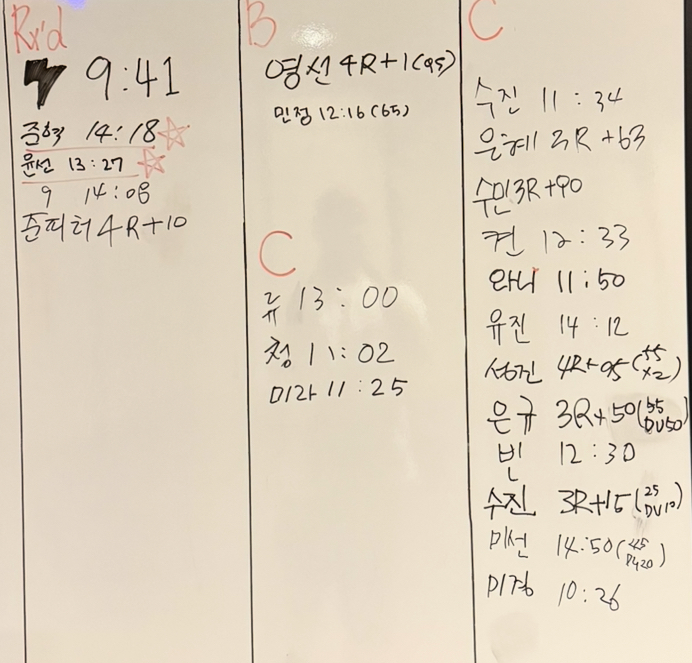 Rx'd
9:41
준혁 14:18
윤선 13:27
9 14:08
준피터 4R+10
B
영선 4R+1(95)
민정 12:16(65)
C
류 13:00
청 11:02
미라 11:25
C
수진 11:34
은혜 3R+63
수민 3R+90
켠 12:33
와니 11:50
유진 14:12
성진 4R+05(55 x2)
은규 3R+50(55 DU50)
빈 12:30
수진 3R+15(25 DU10)
미선 14:50(45
미경 10:26